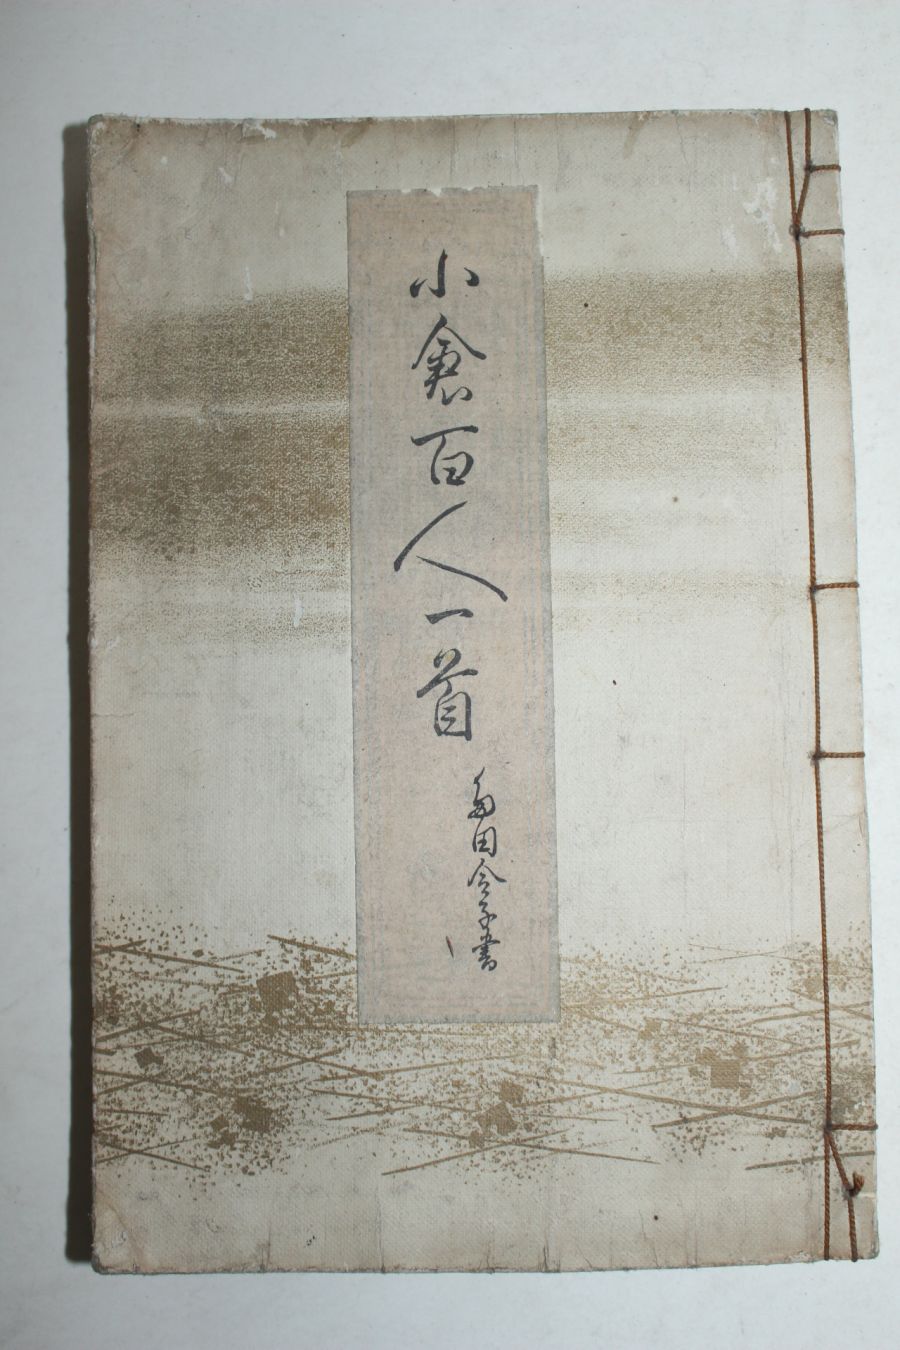 小倉百人一首
田令子書